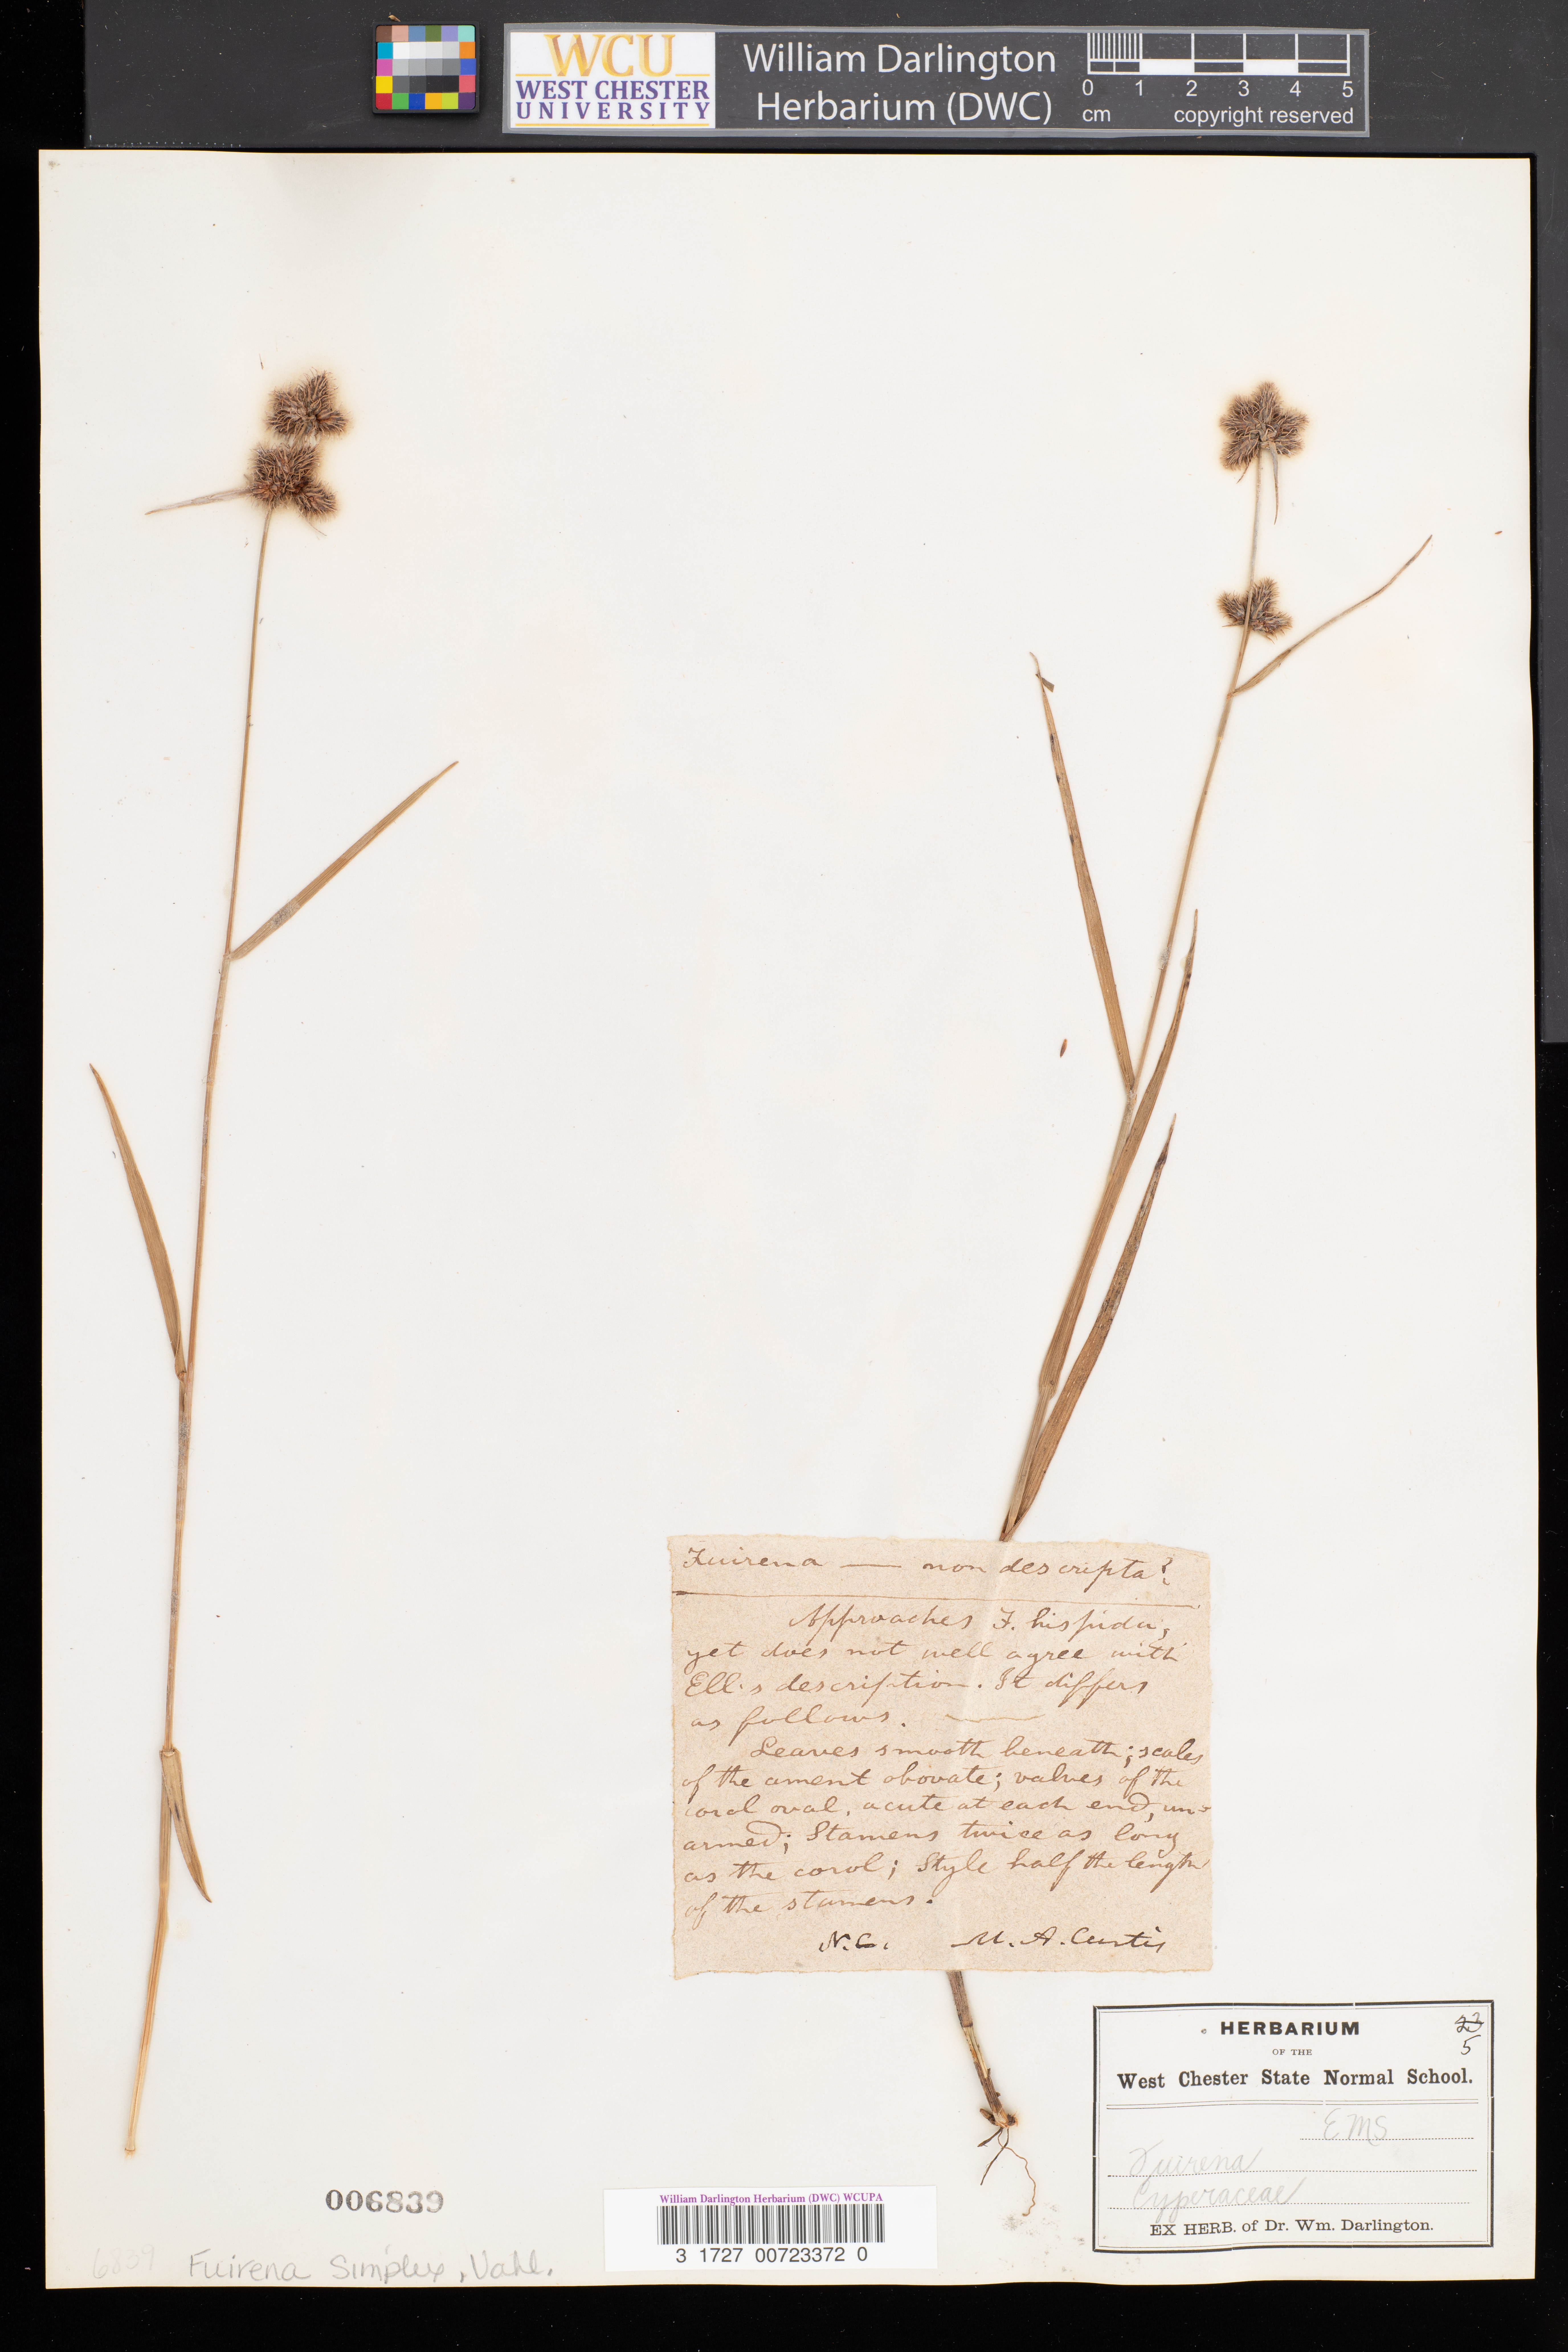 WCU
WEST CHESTER
UNIVERSITY
William Darlington
Herbarium (DWC)
0 1 2 3 4 5
cm copyright reserved
Fuirena — non descripta?
Approaches F. hispida,
yet does not well agree with
Ell's description. It differs
as follows.
Leaves smooth beneath; scales
of the ament obovate; valves of the
corol oval, acute at each end, un-
armed; Stamens twice as long
as the corol; Style half the length
of the stamens.
N.C. M. A. Curtis
HERBARIUM
23
OF THE
5
West Chester State Normal School.
EMS
Fuirena
Cyperaceae
EX HERB. of Dr. Wm. Darlington.
006839
William Darlington Herbarium (DWC) WCUPA
3 1727 00723372 0
6839 Fuirena Simplex, Vahl.